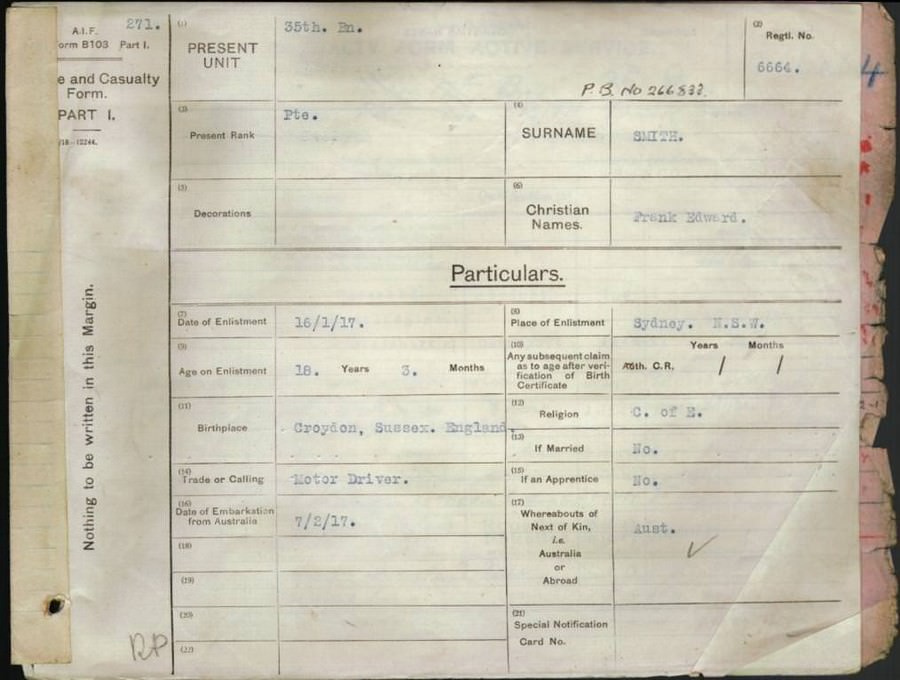 A.I.F.
271.
orm B103 Part I.
e and Casualty
Form.
PART I.
/18—12244.
Nothing to be written in this Margin.
RP
(1)
PRESENT
UNIT
35th. Bn.
P.B. No 266833.
(2)
Regtl. No.
6664.
4
(3)
Present Rank
Pte.
(4)
SURNAME
SMITH.
(5)
Decorations
(6)
Christian
Names.
Frank Edward.
Particulars.
(7)
Date of Enlistment
16/1/17.
(8)
Place of Enlistment
Sydney. N.S.W.
(9)
Age on Enlistment
18. Years 3. Months
(10)
Any subsequent claim
as to age after veri-
fication of Birth
Certificate
Auth. C.R.
Years Months
/ /
(11)
Birthplace
Croydon, Sussex. England.
(12)
Religion
C. of E.
(13)
If Married
No.
(14)
Trade or Calling
Motor Driver.
(15)
If an Apprentice
No.
(16)
Date of Embarkation
from Australia
7/2/17.
(17)
Whereabouts of
Next of Kin,
i.e.
Australia
or
Abroad
Aust.
(18)
(19)
(20)
(21)
Special Notification
Card No.
(22)